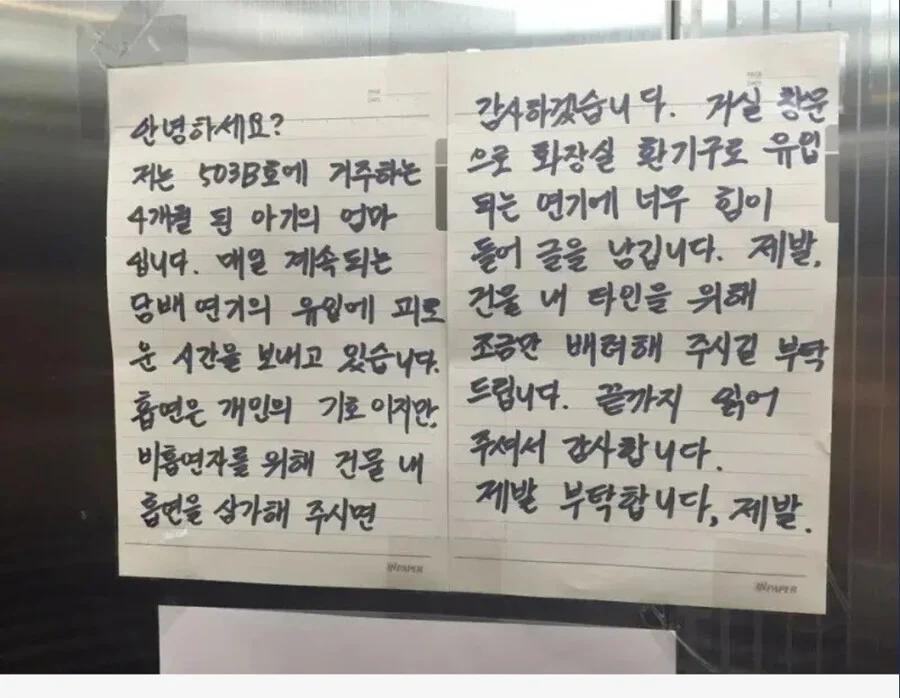 안녕하세요?
저는 503B호에 거주하는
4개월 된 아기의 엄마
입니다. 매일 계속되는
담배 연기의 유입에 괴로
운 시간을 보내고 있습니다.
흡연은 개인의 기호이지만,
비흡연자를 위해 건물 내
흡연을 삼가해 주시면
INPAPER
감사하겠습니다. 거실 창문
으로 화장실 환기구로 유입
되는 연기에 너무 힘이
들어 글을 남깁니다. 제발,
건물 내 타인을 위해
조금만 배려해 주시길 부탁
드립니다. 끝까지 읽어
주셔서 감사합니다.
제발 부탁합니다, 제발.
INPAPER